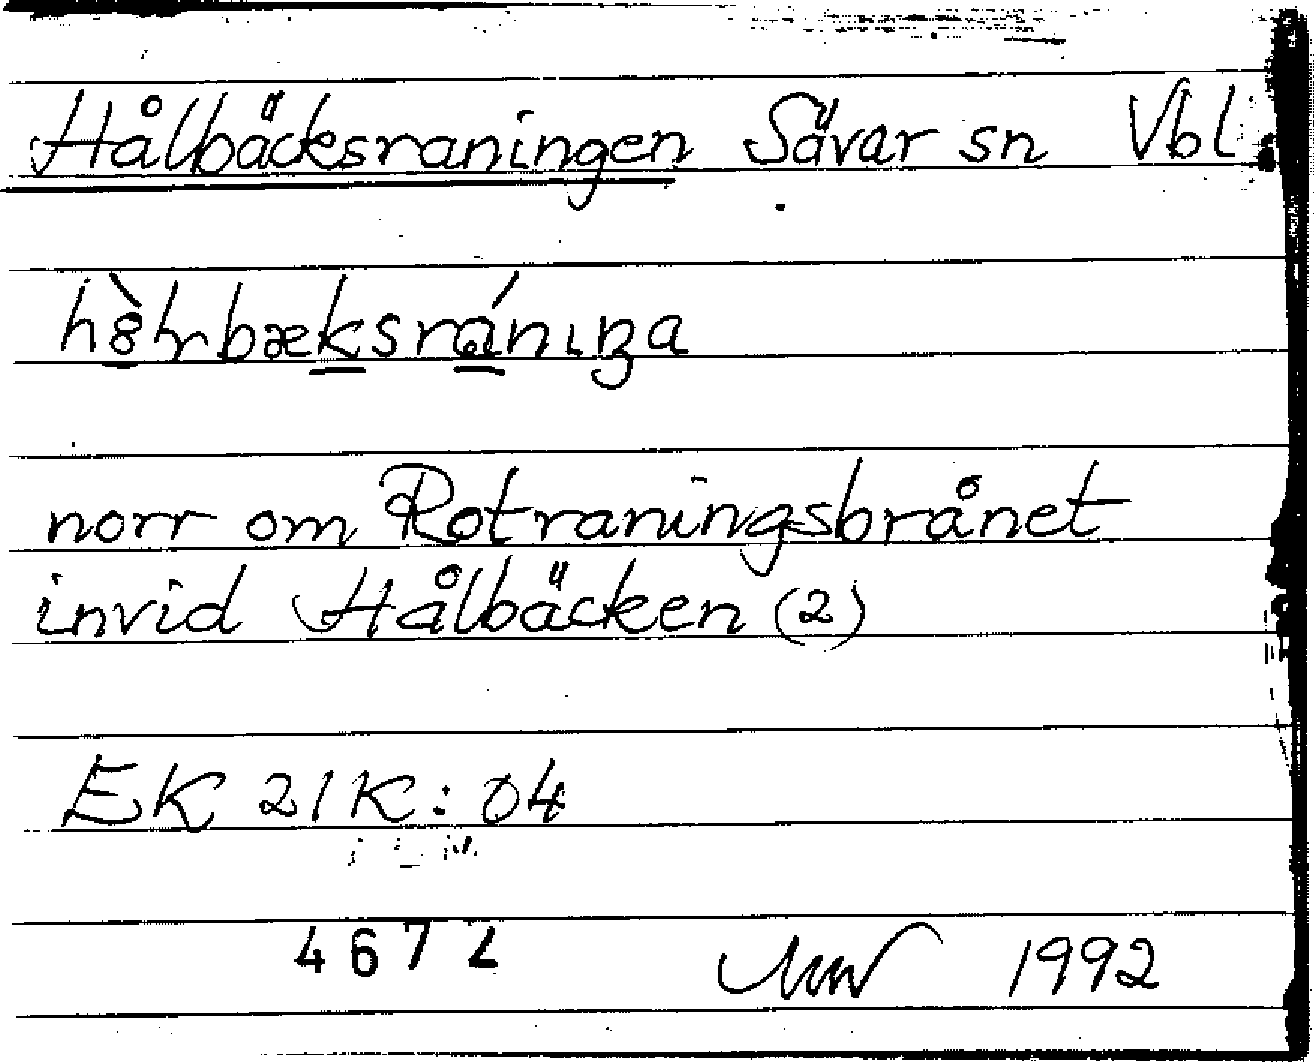 Hålbäcksraningen Sävar sn Vbl.
norr om Rotraningsbrånet
invid Hålbäcken (2)
EK 21K: 04
4672 1992